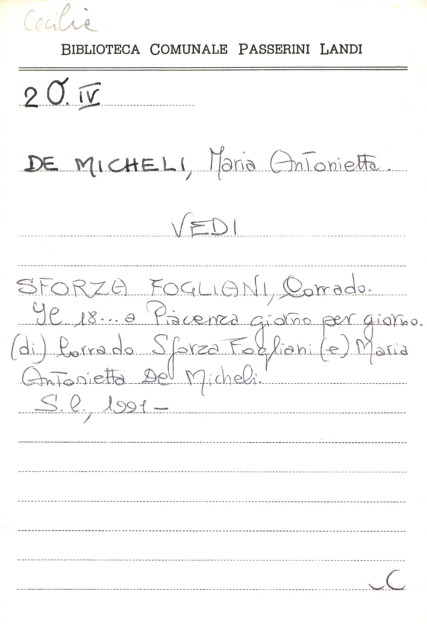 Cecilie
BIBLIOTECA COMUNALE PASSERINI LANDI
2 O. IV
DE MICHELI, Maria Antonietta.
VEDI
SFORZA FOGLIANI, Corrado.
Il 18... a Piacenza giorno per giorno.
(di) Corrado Sforza Fogliani (e) Maria
Antonietta De Micheli.
S.l., 1991-
C